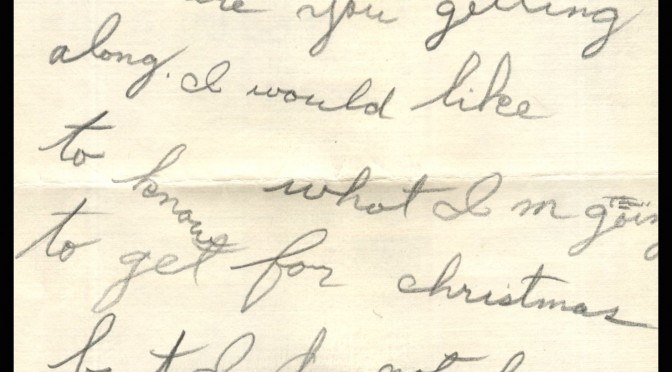 are you getting
along. I would like
to know what I m going
to get for christmas
but I do not